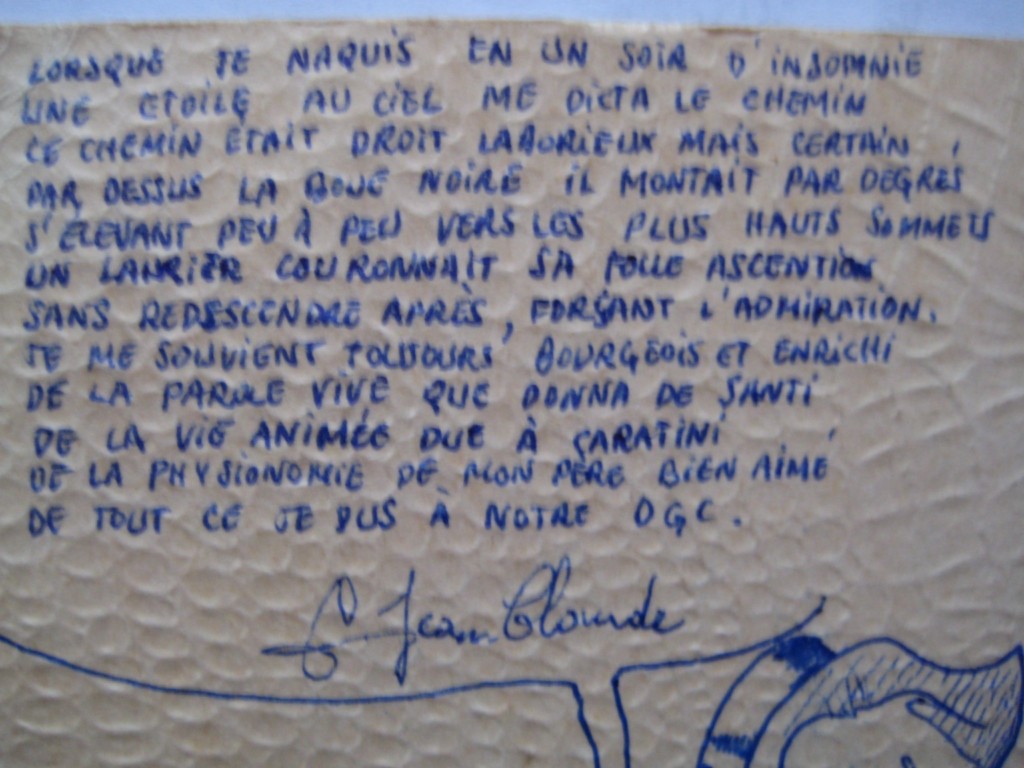 LORSQUE JE NAQUIS EN UN SOIR D'INSOMNIE
UNE ETOILE AU CIEL ME DICTA LE CHEMIN
CE CHEMIN ETAIT DROIT LABORIEUX MAIS CERTAIN,
PAR DESSUS LA BOUE NOIRE IL MONTAIT PAR DEGRES
S'ELEVANT PEU À PEU VERS LES PLUS HAUTS SOMMETS
UN LAURIER COURONNAIT SA FOLLE ASCENTION
SANS REDESCENDRE APRÈS, FORÇANT L'ADMIRATION.
JE ME SOUVIENT TOUJOURS BOURGEOIS ET ENRICHI
DE LA PAROLE VIVE QUE DONNA DE SANTI
DE LA VIE ANIMÉE DUE À SARATINI
DE LA PHYSIONOMIE DE MON PÈRE BIEN AIMÉ
DE TOUT CE JE DUS À NOTRE OGC.
Jean Claude